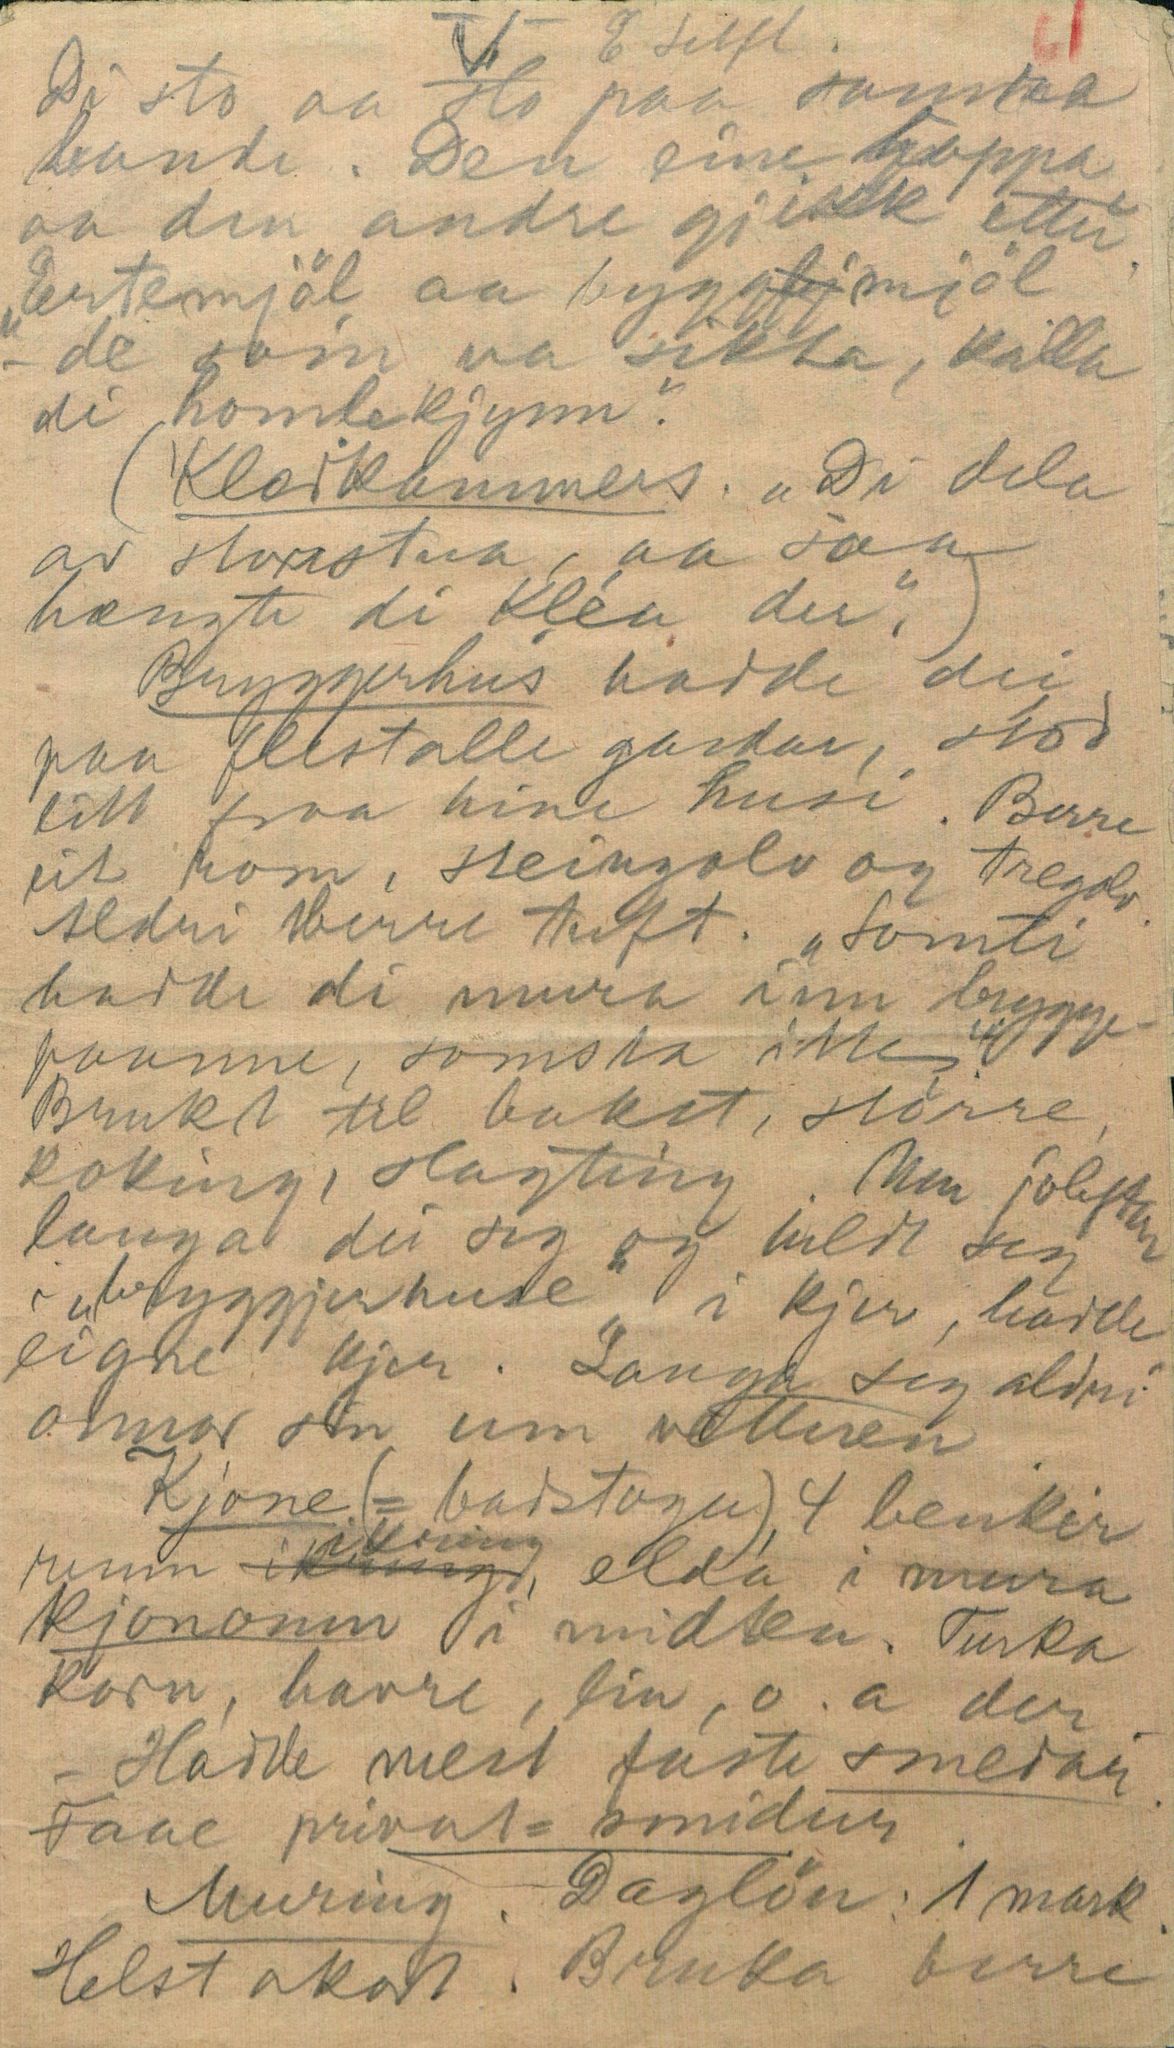 VI E Selfl. 61
Di sto aa slo paa samstaa
baade. Den eine hoppa
aa den andre gjikk etter.
"Ertemjöl aa byggmjöl
- de som va sikta, kalla
di homlekjynn".
(Kledkammers. "Di dela
av storstua, aa saa
hængte di kléa der".)
Bryggerhus hadde dei
paa flestalle gardar, stod
litt fraa hine husi. Berre
eit rom, steingolv og tregolv.
Aldri berre tuft. "Somti
hadde di mura inn brygge-
paanne, somsta itte"
Brukt til bakst, större
koking, slagting. Men joleftan
lauga dei seg og heldt seg
i "bryggjerhuse" i kjer, hadde
eigne kjer. Lauga seg aldri
annor sin um vetteren
Kjone (= badstogu), 4 benkir
reun ikring, elda i mura
kjonomn i midten. Turka
korn, havre, lin, o. a der
- Hadde mest faste smedar.
Faae privat= smidur.
Muring. Daglön: 1 mark.
Helst akort. Bruka berre